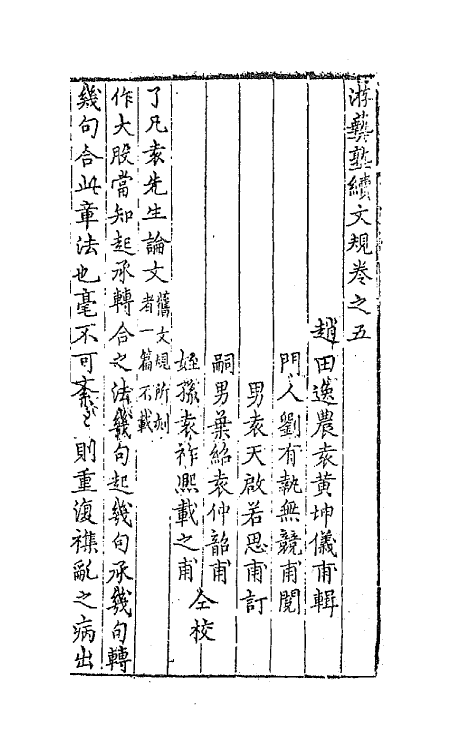 游藝塾續文規卷之五
趙田逸農袁黃坤儀甫輯
門人劉有執無競甫閱
男袁天啟若思甫訂
嗣男葉紹袁仲韶甫
姪孫袁祚熙載之甫
仝校
了凡袁先生論文 舊文規所刻者一篇不載
作大股當知起承轉合之法幾句起幾句承幾句轉
幾句合此章法也毫不可紊紊則重復襍亂之病出